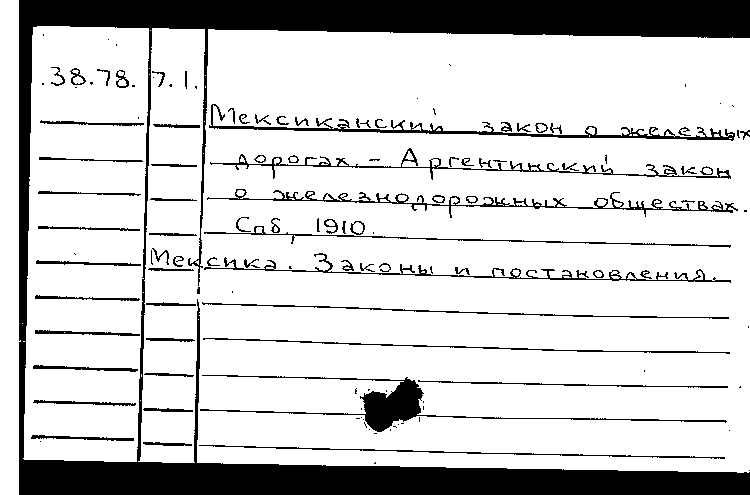 38.78. 7.1.
Мексиканский закон о железных
дорогах. – Аргентинский закон
о железнодорожных обществах.
Спб., 1910.
Мексика. Законы и постановления.